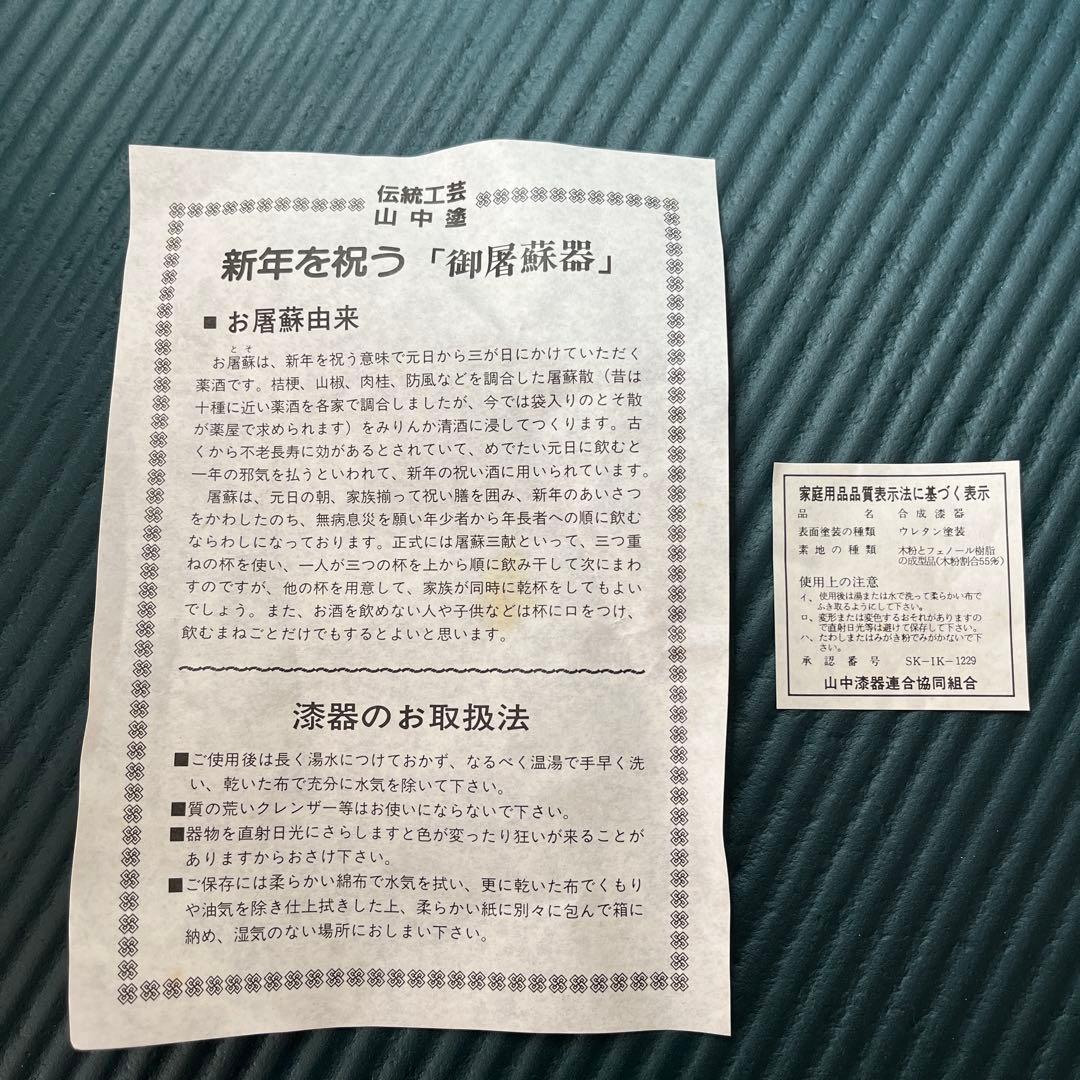 伝統工芸
山中塗
新年を祝う「御屠蘇器」
■お屠蘇由来
とそ
お屠蘇は、新年を祝う意味で元日から三が日にかけていただく
薬酒です。桔梗、山椒、肉桂、防風などを調合した屠蘇散（昔は
十種に近い薬酒を各家で調合しましたが、今では袋入りのとそ散
が薬屋で求められます）をみりんか清酒に浸してつくります。古
くから不老長寿に効があるとされていて、めでたい元日に飲むと
一年の邪気を払うといわれて、新年の祝い酒に用いられています。
屠蘇は、元日の朝、家族揃って祝い膳を囲み、新年のあいさつ
をかわしたのち、無病息災を願い年少者から年長者への順に飲む
ならわしになっております。正式には屠蘇三献といって、三つ重
ねの杯を使い、一人が三つの杯を上から順に飲み干して次にまわ
すのですが、他の杯を用意して、家族が同時に乾杯をしてもよい
でしょう。また、お酒を飲めない人や子供などは杯に口をつけ、
飲むまねごとだけでもするとよいと思います。
漆器のお取扱法
■ご使用後は長く湯水につけておかず、なるべく温湯で手早く洗
い、乾いた布で充分に水気を除いて下さい。
■質の荒いクレンザー等はお使いにならないで下さい。
■器物を直射日光にさらしますと色が変ったり狂いが来ることが
ありますからおさけ下さい。
■ご保存には柔らかい綿布で水気を拭い、更に乾いた布でくもり
や油気を除き仕上拭きした上、柔らかい紙に別々に包んで箱に
納め、湿気のない場所におしまい下さい。
家庭用品品質表示法に基づく表示
品名 合成漆器
表面塗装の種類 ウレタン塗装
素地の種類 木粉とフェノール樹脂
の成型品(木粉割合55%)
使用上の注意
イ、使用後は湯または水で洗って柔らかい布で
ふき取るようにして下さい。
ロ、変形または変色するおそれがありますの
で直射日光等は避けて保存して下さい。
ハ、たわしまたはみがき粉でみがかないで下
さい。
承認番号 SK-IK-1229
山中漆器連合協同組合